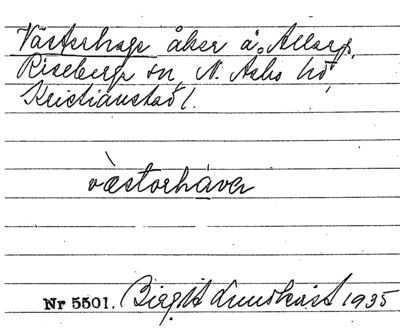 Västerhage åker å Allarp,
Riseberga sn, N. Åsbo hd,
Kristianstad l.
västorháva
Nr 5501. Birgit Lundkvist 1935